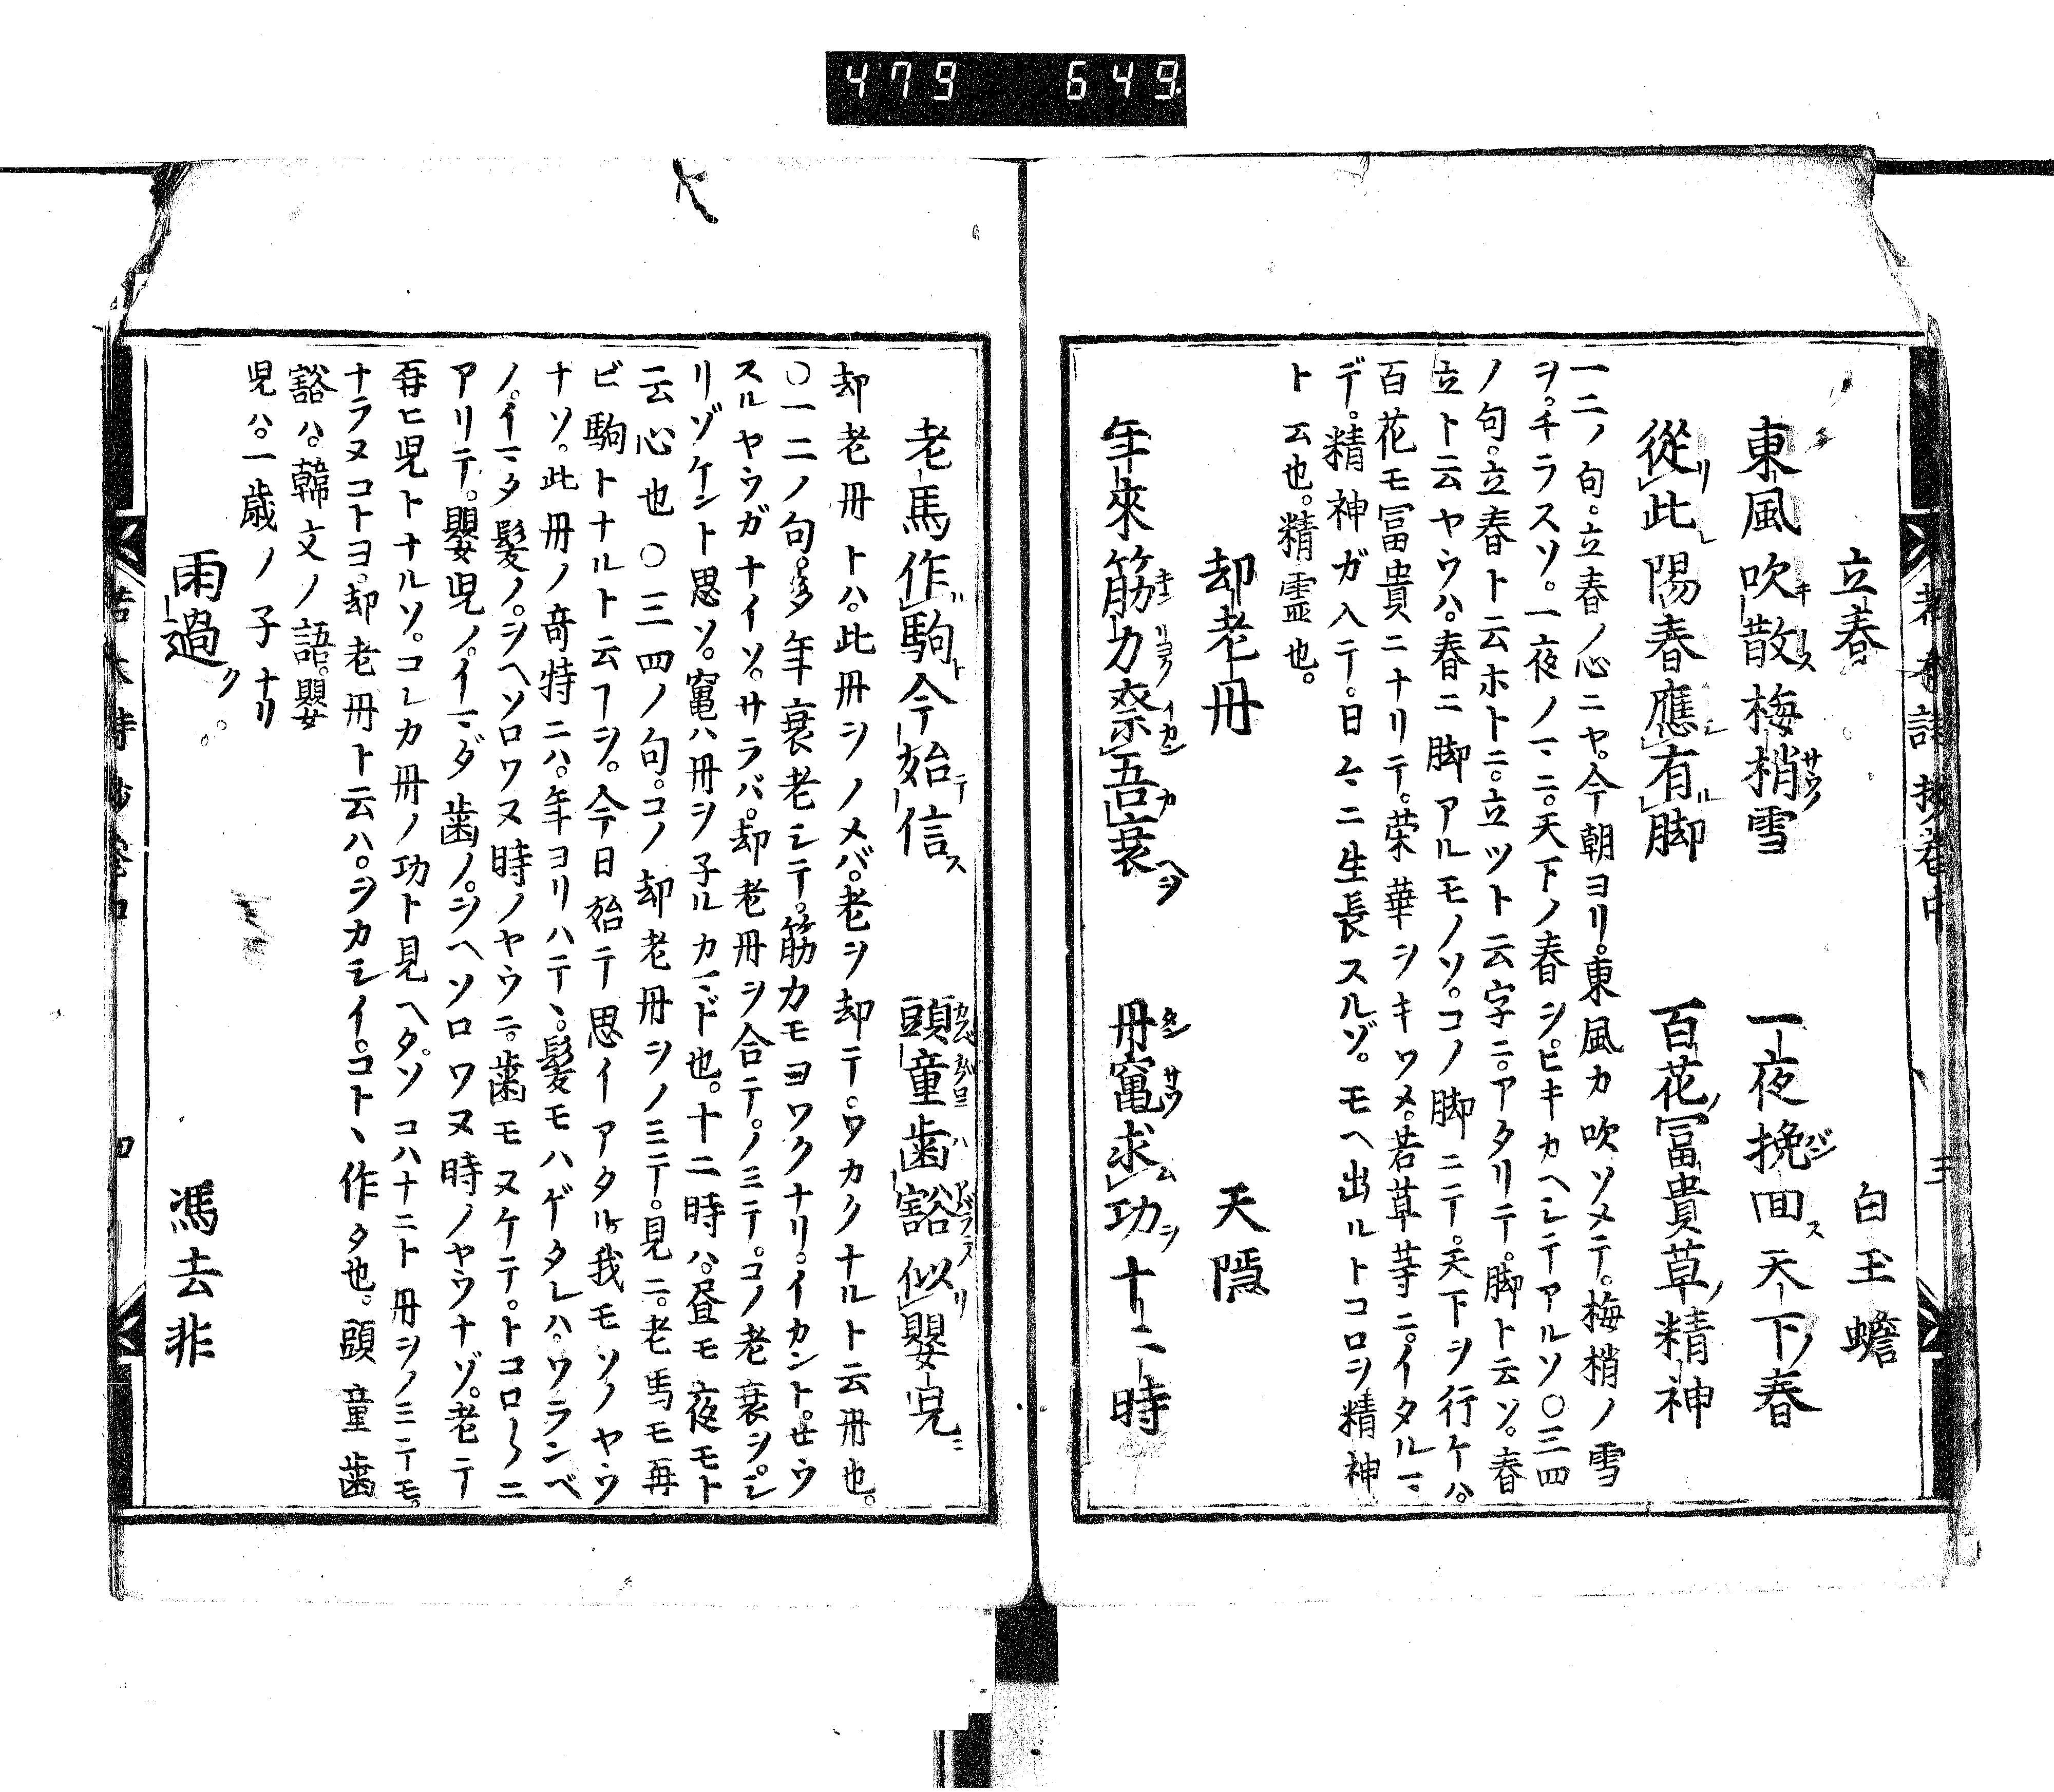 479 649
立春
白玉蟾
東風吹散梅梢雪 一夜挽回天下春
從此陽春應有脚 百花冨貴草精神
一二ノ句。立春ノ心ニヤ。今朝ヨリ。東風カ吹ソメテ。梅梢ノ雪
ヲ。チラスソ。一夜ノ一ニ。天下ノ春ヲ。ヒキカヘシテアルソ〇三四
ノ句。立春ト云ホトニ。立ツト云字ニ。アタリテ。脚ト云ソ。春
立ト云ヤウハ。春ニ脚アルモノソ。コノ脚ニテ。天下ヲ行ケハ。
百花モ冨貴ニナリテ。栄華ヲキワメ。若草等ニ。イタルマ
デ。精神ガ入テ。日々ニ生長スルゾ。モヘ出ルトコロヲ精神
ト云也。精霊也。
却老丹
天隠
年來筋力柰吾衰 丹竃求功十二時
老馬作駒今始信 頭童歯豁似嬰児
却老丹トハ。此丹ヲノメバ。老ヲ却テ。ワカクナルト云丹也。
〇一二ノ句。多年衰老シテ。筋力モヨワクナリ。イカント。せウ
スルヤウガナイソ。サラバ。却老丹ヲ合テ。ノミテ。コノ老衰ヲ。シ
リゾケント思ソ。竃ハ丹ヲ子ルカマド也。十二時ハ。昼モ夜モト
云心也〇三四ノ句。コノ却老丹ヲノミテ。見ニ。老馬モ再
ビ駒トナルト云フヲ。今日始テ思イアタル。我モソノヤウ
ナソ。此丹ノ奇特ニハ。年ヨリハテヽ。髪モハゲタレハ。ウランベ
ノ。イマタ髪ノ。ヲヘソロワヌ時ノヤウニ。歯モヌケテ。トコロ〱ニ
アリテ。嬰児ノ。イマダ歯ノ。ヲヘソロワヌ時ノヤウナゾ。老テ
再ヒ児トナルソ。コレカ丹ノ功ト見ヘタ。ソコハナニト丹ヲノミテモ。
ナラヌコトヨ。却老丹ト云ハ。ヲカシイ。コトヽ作タ也。頭童歯
豁ハ。韓文ノ語。嬰
児ハ。一歳ノ子ナリ
雨過
馮去非